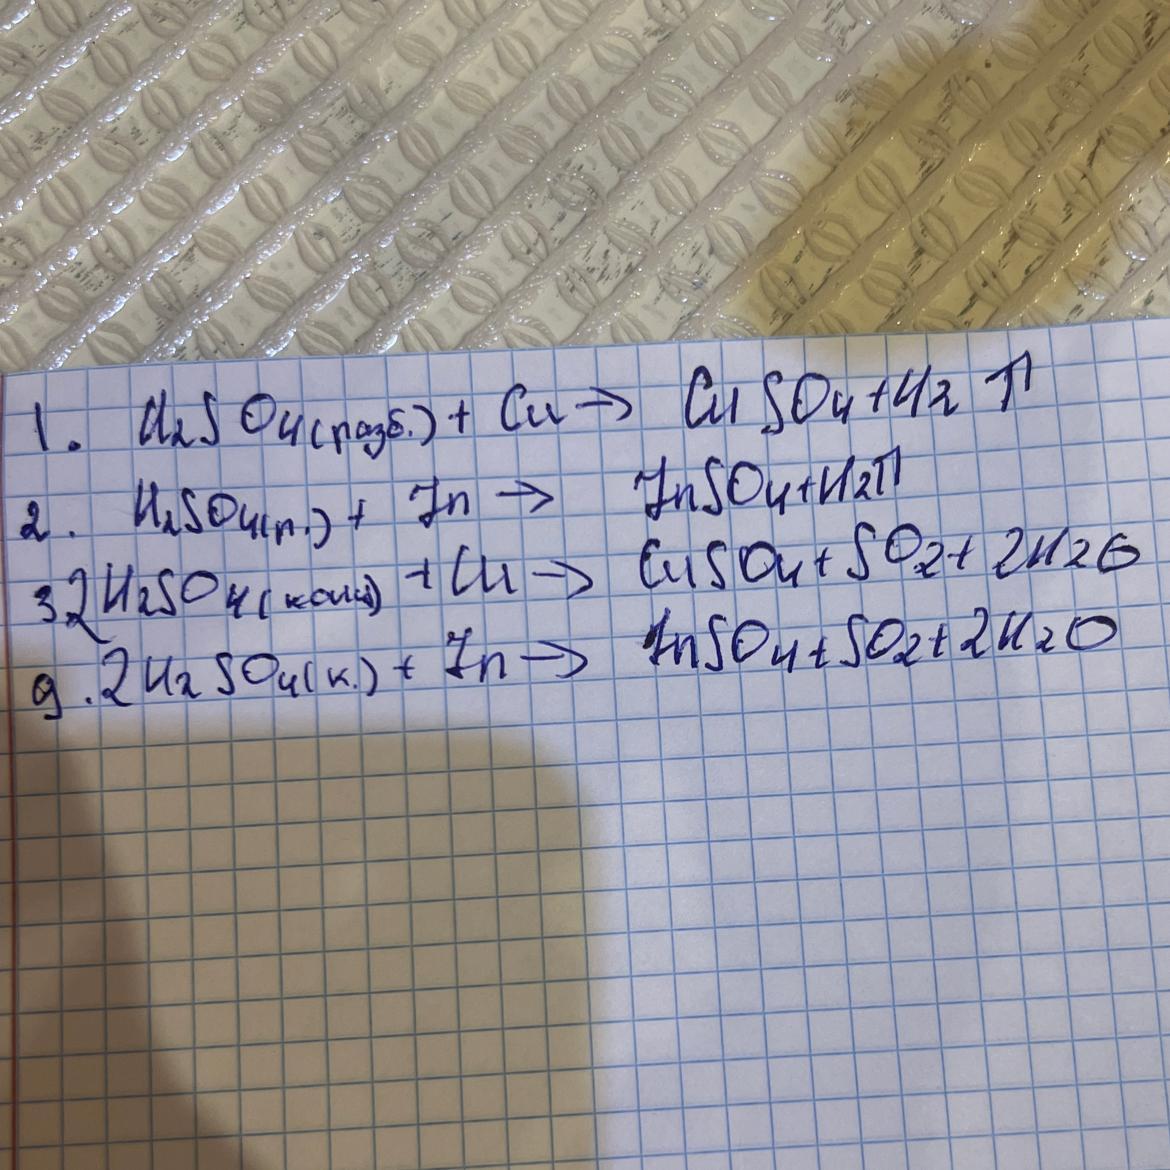 1. H2SO4(разб.) + Cu → CuSO4 + H2 ↑
2. H2SO4(р.) + Zn → ZnSO4 + H2↑
3 2H2SO4(конц) + Cu → CuSO4 + SO2 + 2H2O
9. 2H2SO4(к.) + Zn → ZnSO4 + SO2 + 2H2O